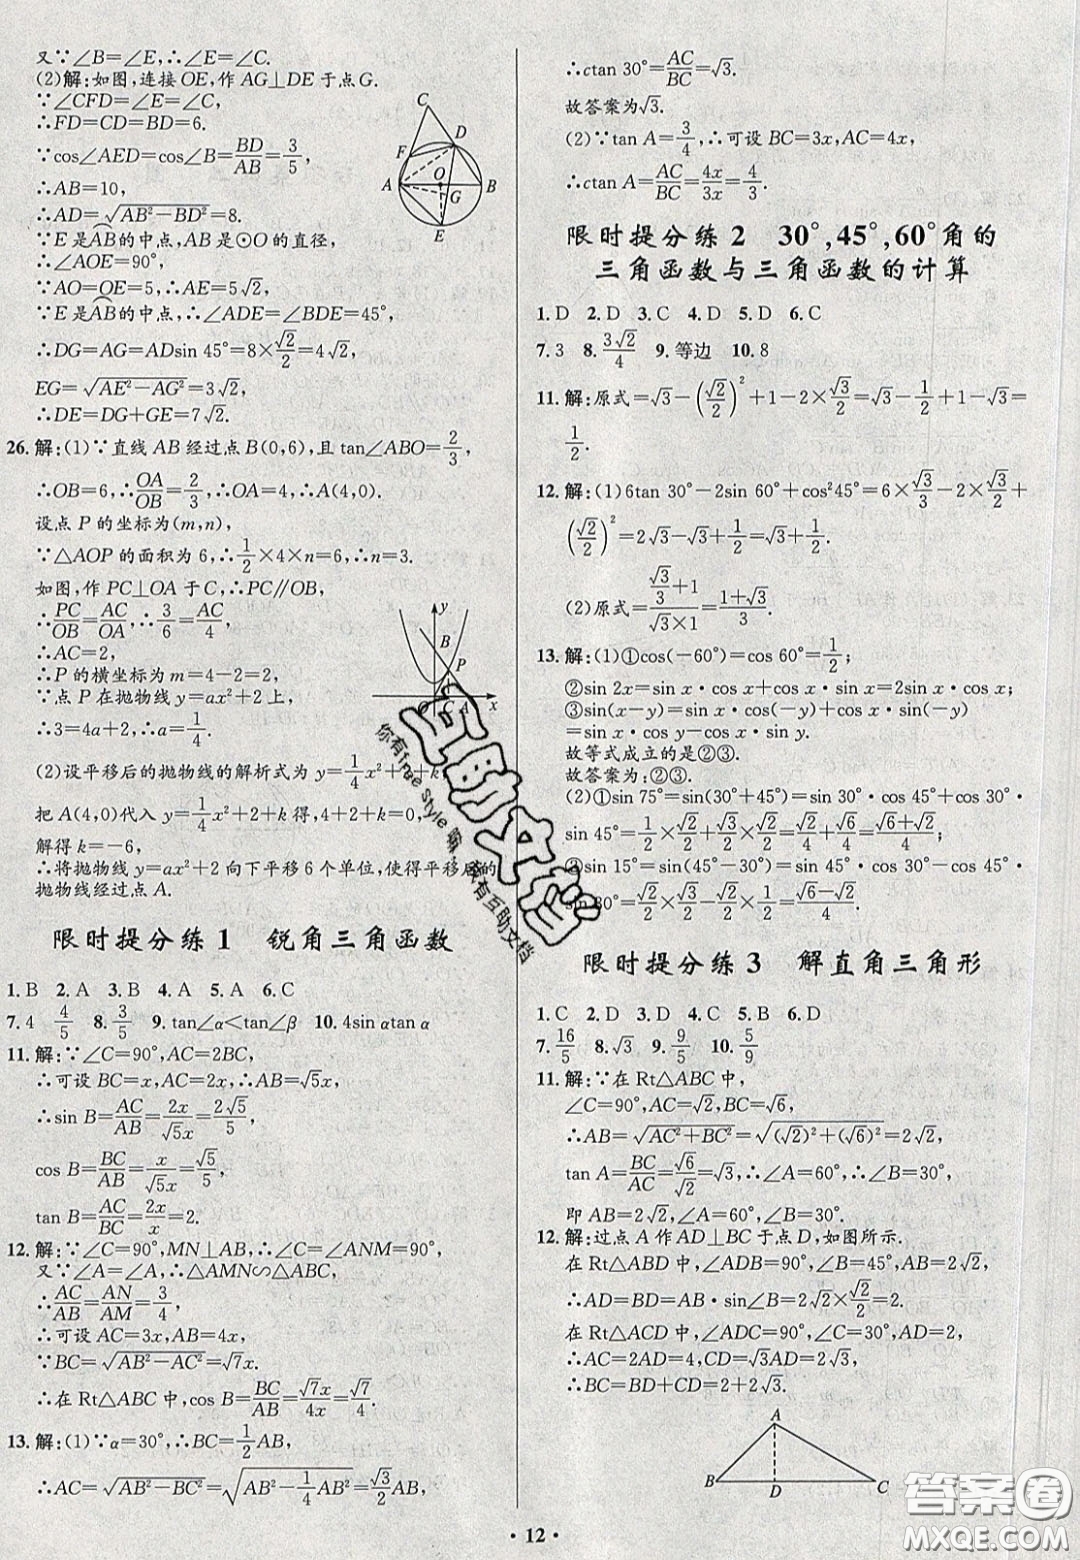 又∵∠B=∠E,∴∠E=∠C.
(2)解:如图,连接OE,作AG⊥DE于点G.
∵∠CFD=∠E=∠C,
∴FD=CD=BD=6.
∵cos∠AED=cos∠B=BD/AB=3/5,
∴AB=10,
∴AD=√(AB²-BD²)=8.
∵E是AB的中点,AB是⊙O的直径,
∴∠AOE=90°,
∵AO=OE=5,∴AE=5√2.
∵E是AB的中点,∴∠ADE=∠BDE=45°,
∴DG=AG=ADsin 45°=8×√2/2=4√2,
EG=√(AE²-AG²)=3√2,
∴DE=DG+GE=7√2.
C
D
F
A
O
B
G
E
26.解:(1)∵直线AB经过点B(0,6),且tan∠ABO=2/3,
∴OB=6,∴OA/OB=2/3,∴OA=4,∴A(4,0).
设点P的坐标为(m,n),
∵△AOP的面积为6,∴1/2×4×n=6,∴n=3.
如图,作PC⊥OA于C,∴PC∥OB,
∴PC/OB=AC/OA,∴3/6=AC/4,
∴AC=2,
∴P的横坐标为m=4-2=2,
∵点P在抛物线y=ax²+2上,
∴3=4a+2,∴a=1/4.
y
B
P
O
C
A
x
(2)设平移后的抛物线的解析式为y=1/4x²+2+k
把A(4,0)代入y=1/4x²+2+k得,4+2+k=0,
解得k=-6,
∴将抛物线y=ax²+2向下平移6个单位,使得平移后的
抛物线经过点A.
限时提分练1 锐角三角函数
1.B 2.A 3.B 4.A 5.A 6.C
7.4 4/5 8.3/5 9.tan∠α<tan∠β 10.4sin αtan α
11.解:∵∠C=90°,AC=2BC,
∴可设BC=x,AC=2x,∴AB=√5x,
∴sin B=AC/AB=2x/√5x=2√5/5,
cos B=BC/AB=x/√5x=√5/5,
tan B=AC/BC=2x/x=2.
12.解:∵∠C=90°,MN⊥AB,∴∠C=∠ANM=90°,
又∵∠A=∠A,∴△AMN∽△ABC,
∴AC/AB=AN/AM=3/4,
∴可设AC=3x,AB=4x,
∵BC=√(AB²-AC²)=√7x.
∴在Rt△ABC中,cos B=BC/AB=√7x/4x=√7/4.
13.解:(1)∵α=30°,∴BC=1/2AB,
∴AC=√(AB²-BC²)=√(AB²-1/4AB²)=√3/2AB,
∴ctan 30°=AC/BC=√3.
故答案为√3.
(2)∵tan A=3/4,∴可设BC=3x,AC=4x,
∴ctan A=AC/BC=4x/3x=4/3.
限时提分练2 30°,45°,60°角的
三角函数与三角函数的计算
1.D 2.D 3.C 4.D 5.D 6.C
7.3 8.3√2/4 9.等边 10.8
11.解:原式=√3-(√2/2)²+1-2×√3/2=√3-1/2+1-√3=
1/2.
12.解:(1)6tan 30°-2sin 60°+cos²45°=6×√3/3-2×√3/2+
(√2/2)²=2√3-√3+1/2=√3+1/2.
(2)原式=(√3/3+1)/(√3×1)=(1+√3)/3.
13.解:(1)①cos(-60°)=cos 60°=1/2;
②sin 2x=sin x·cos x+cos x·sin x=2sin x·cos x;
③sin(x-y)=sin x·cos(-y)+cos x·sin(-y)
=sin x·cos y-cos x·sin y.
故等式成立的是②③.
故答案为:②③.
(2)①sin 75°=sin(30°+45°)=sin 30°·cos 45°+cos 30°·
sin 45°=1/2×√2/2+√3/2×√2/2=√2/4+√6/4=(√6+√2)/4;
②sin 15°=sin(45°-30°)=sin 45°·cos 30°-cos 45°·
sin 30°=√2/2×√3/2-√2/2×1/2=(√6-√2)/4.
限时提分练3 解直角三角形
1.C 2.D 3.D 4.D 5.B 6.D
7.16/5 8.√3 9.9/5 10.5/9
11.解:∵在Rt△ABC中,
∠C=90°,AC=√2,BC=√6,
∴AB=√(AC²+BC²)=√((√2)²+(√6)²)=2√2,
tan A=BC/AC=√6/√2=√3,∴∠A=60°,∴∠B=30°,
即AB=2√2,∠A=60°,∠B=30°.
12.解:过点A作AD⊥BC于点D,如图所示.
在Rt△ABD中,∠ADB=90°,∠B=45°,
∴AD=BD=AB·sin∠B=2√2×√2/2=2.
在Rt△ACD中,∠ADC=90°,∠C=30°,
∴AC=2AD=4,CD=√3AD=2√3,
∴BC=BD+CD=2+2√3.
A
B
D
C
· 12 ·
互助文档
你有true style 嘛,我有互助文档
答案圈
MXQE.COM